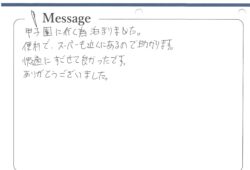 Message
甲子園に行く為泊まりました。
便利で、スーパーも近くにあるので助かります。
快適にすごせて良かったです。
ありがとうございました。